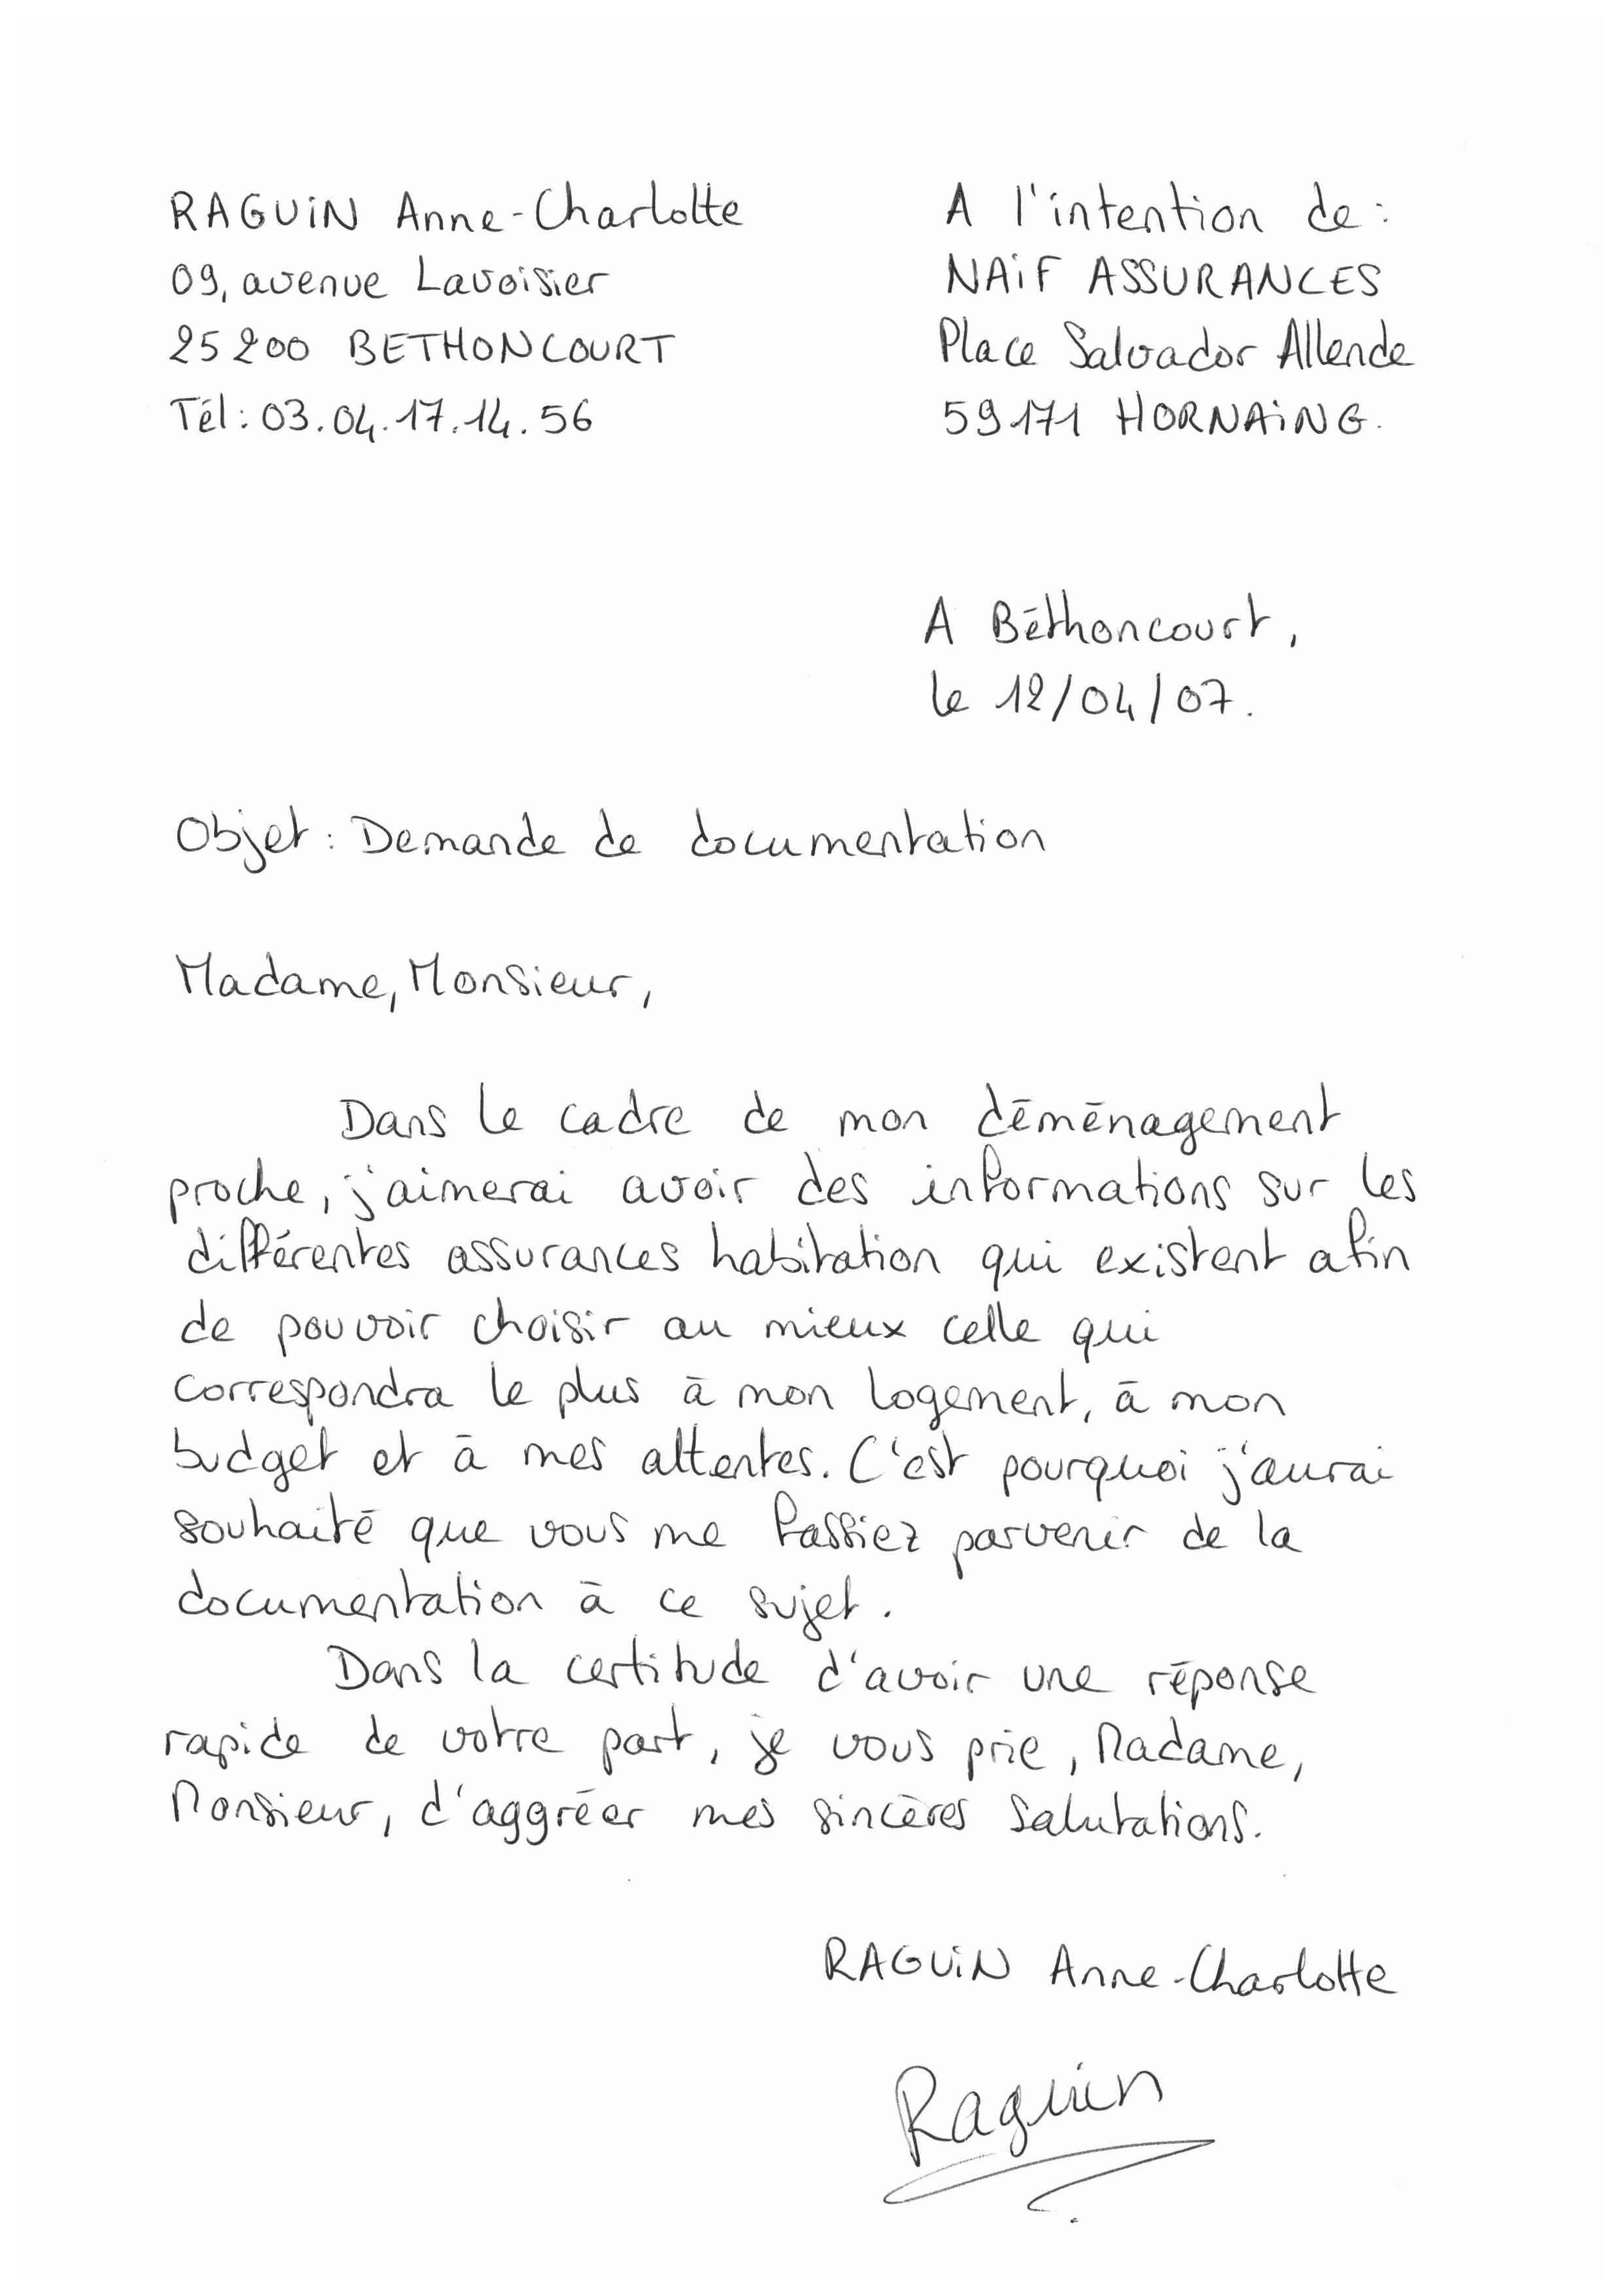 RAGUIN Anne-Charlotte
09, avenue Lavoisier
25200 BETHONCOURT
Tél: 03.04.17.14.56
A l'intention de:
NAIF ASSURANCES
Place Salvador Allende
59171 HORNAING.
A Béthoncourt,
le 12/04/07.
Objet: Demande de documentation
Madame, Monsieur,
Dans le cadre de mon déménagement
proche, j'aimerai avoir des informations sur les
différentes assurances habitation qui existent afin
de pouvoir choisir au mieux celle qui
correspondra le plus à mon logement, à mon
budget et à mes attentes. C'est pourquoi j'aurai
souhaité que vous me fassiez parvenir de la
documentation à ce sujet.
Dans la certitude d'avoir une réponse
rapide de votre part, je vous prie, Madame,
Monsieur, d'aggréer mes sincères salutations.
RAGUIN Anne-Charlotte
Raguin